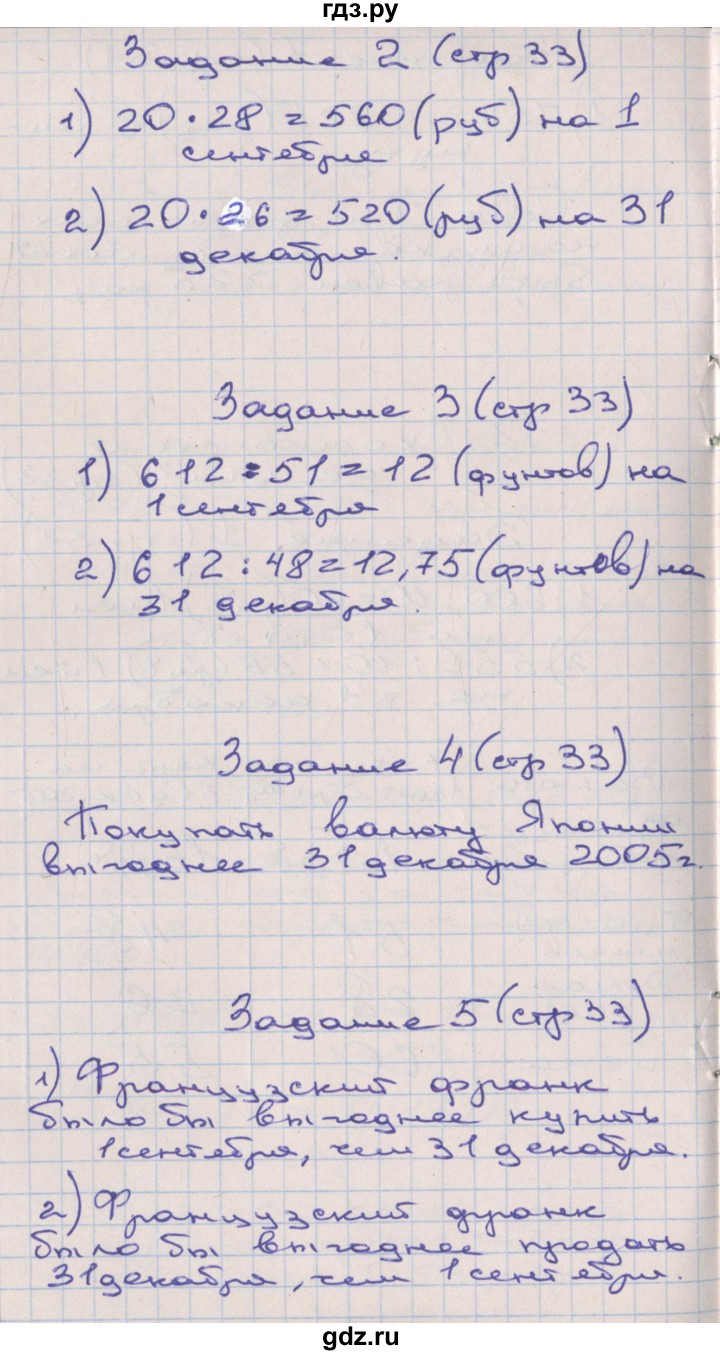 гдз.ру
Задание 2 (стр 33)
1) 20 · 28 = 560 (руб) на 1
сентебря
2) 20 · 26 = 520 (руб) на 31
декабря.
Задание 3 (стр 33)
1) 612 : 51 = 12 (фунтов) на
1 сентебря
2) 612 : 48 = 12,75 (фунтов) на
31 декабря.
Задание 4 (стр 33)
Покупать валюту Японии
выгоднее 31 декабря 2005г.
Задание 5 (стр 33)
1) Французский франк
было бы выгоднее купить
1 сентебря, чем 31 декабря.
2) Французский франк
было бы выгоднее продать
31 декабря, чем 1 сентебря.
gdz.ru